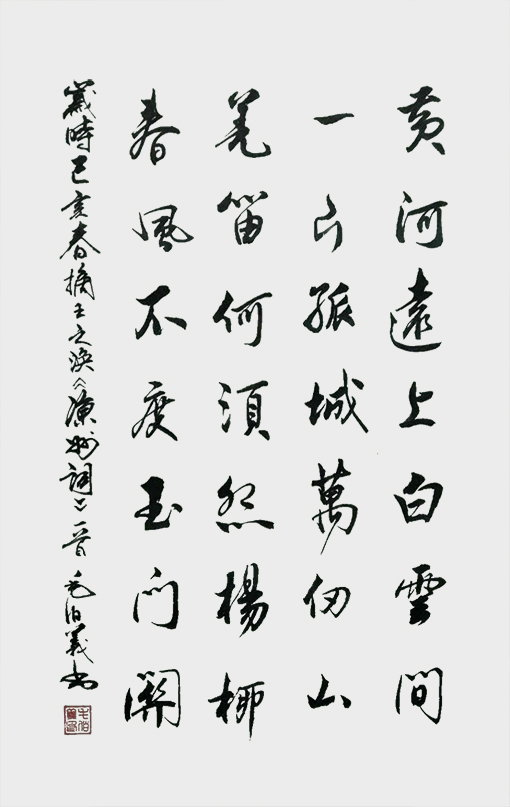 黄河遠上白雲間
一片孤城萬仞山
羌笛何須怨楊柳
春風不度玉门關
歲時己亥春摘王之渙《凉州詞》一首 毛伯義书